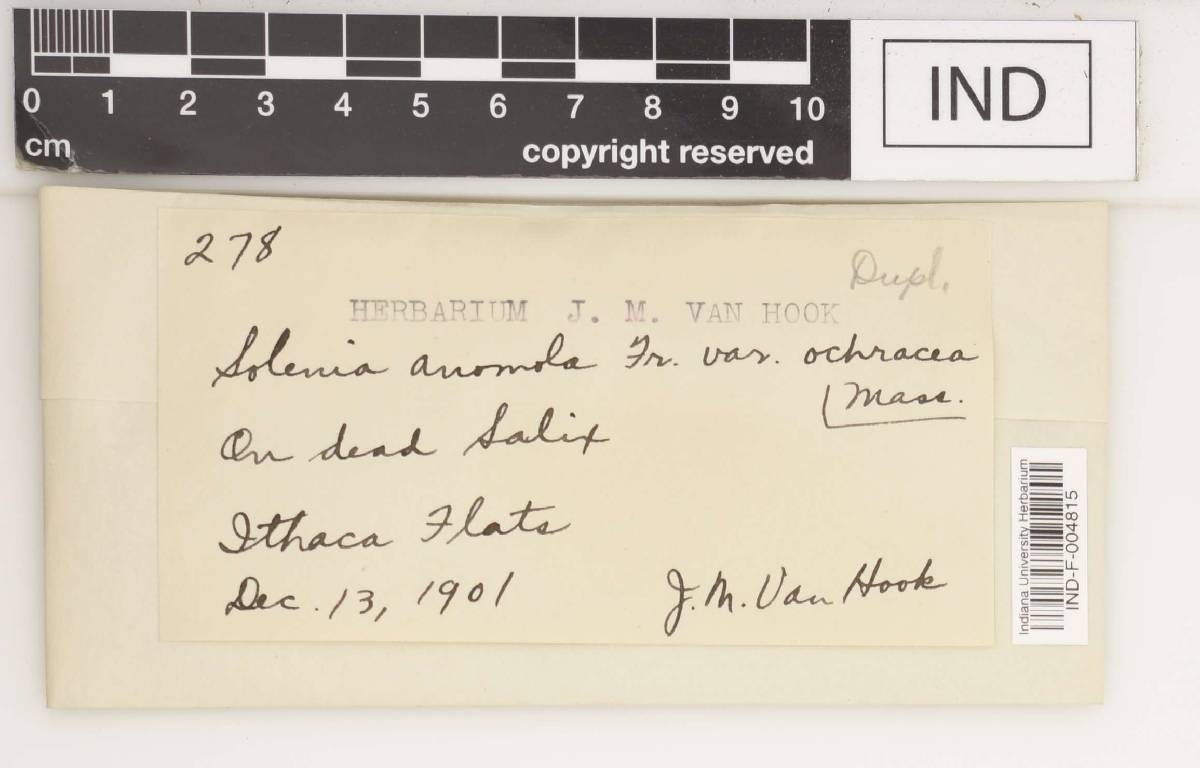 0 1 2 3 4 5 6 7 8 9 10
cm copyright reserved
IND
278
Dupl.
HERBARIUM J. M. VAN HOOK
Solenia anomola Fr. var. ochracea
Mass.
On dead Salix
Ithaca Flats
Dec. 13, 1901 J. M. Van Hook
Indiana University Herbarium
IND-F-004815